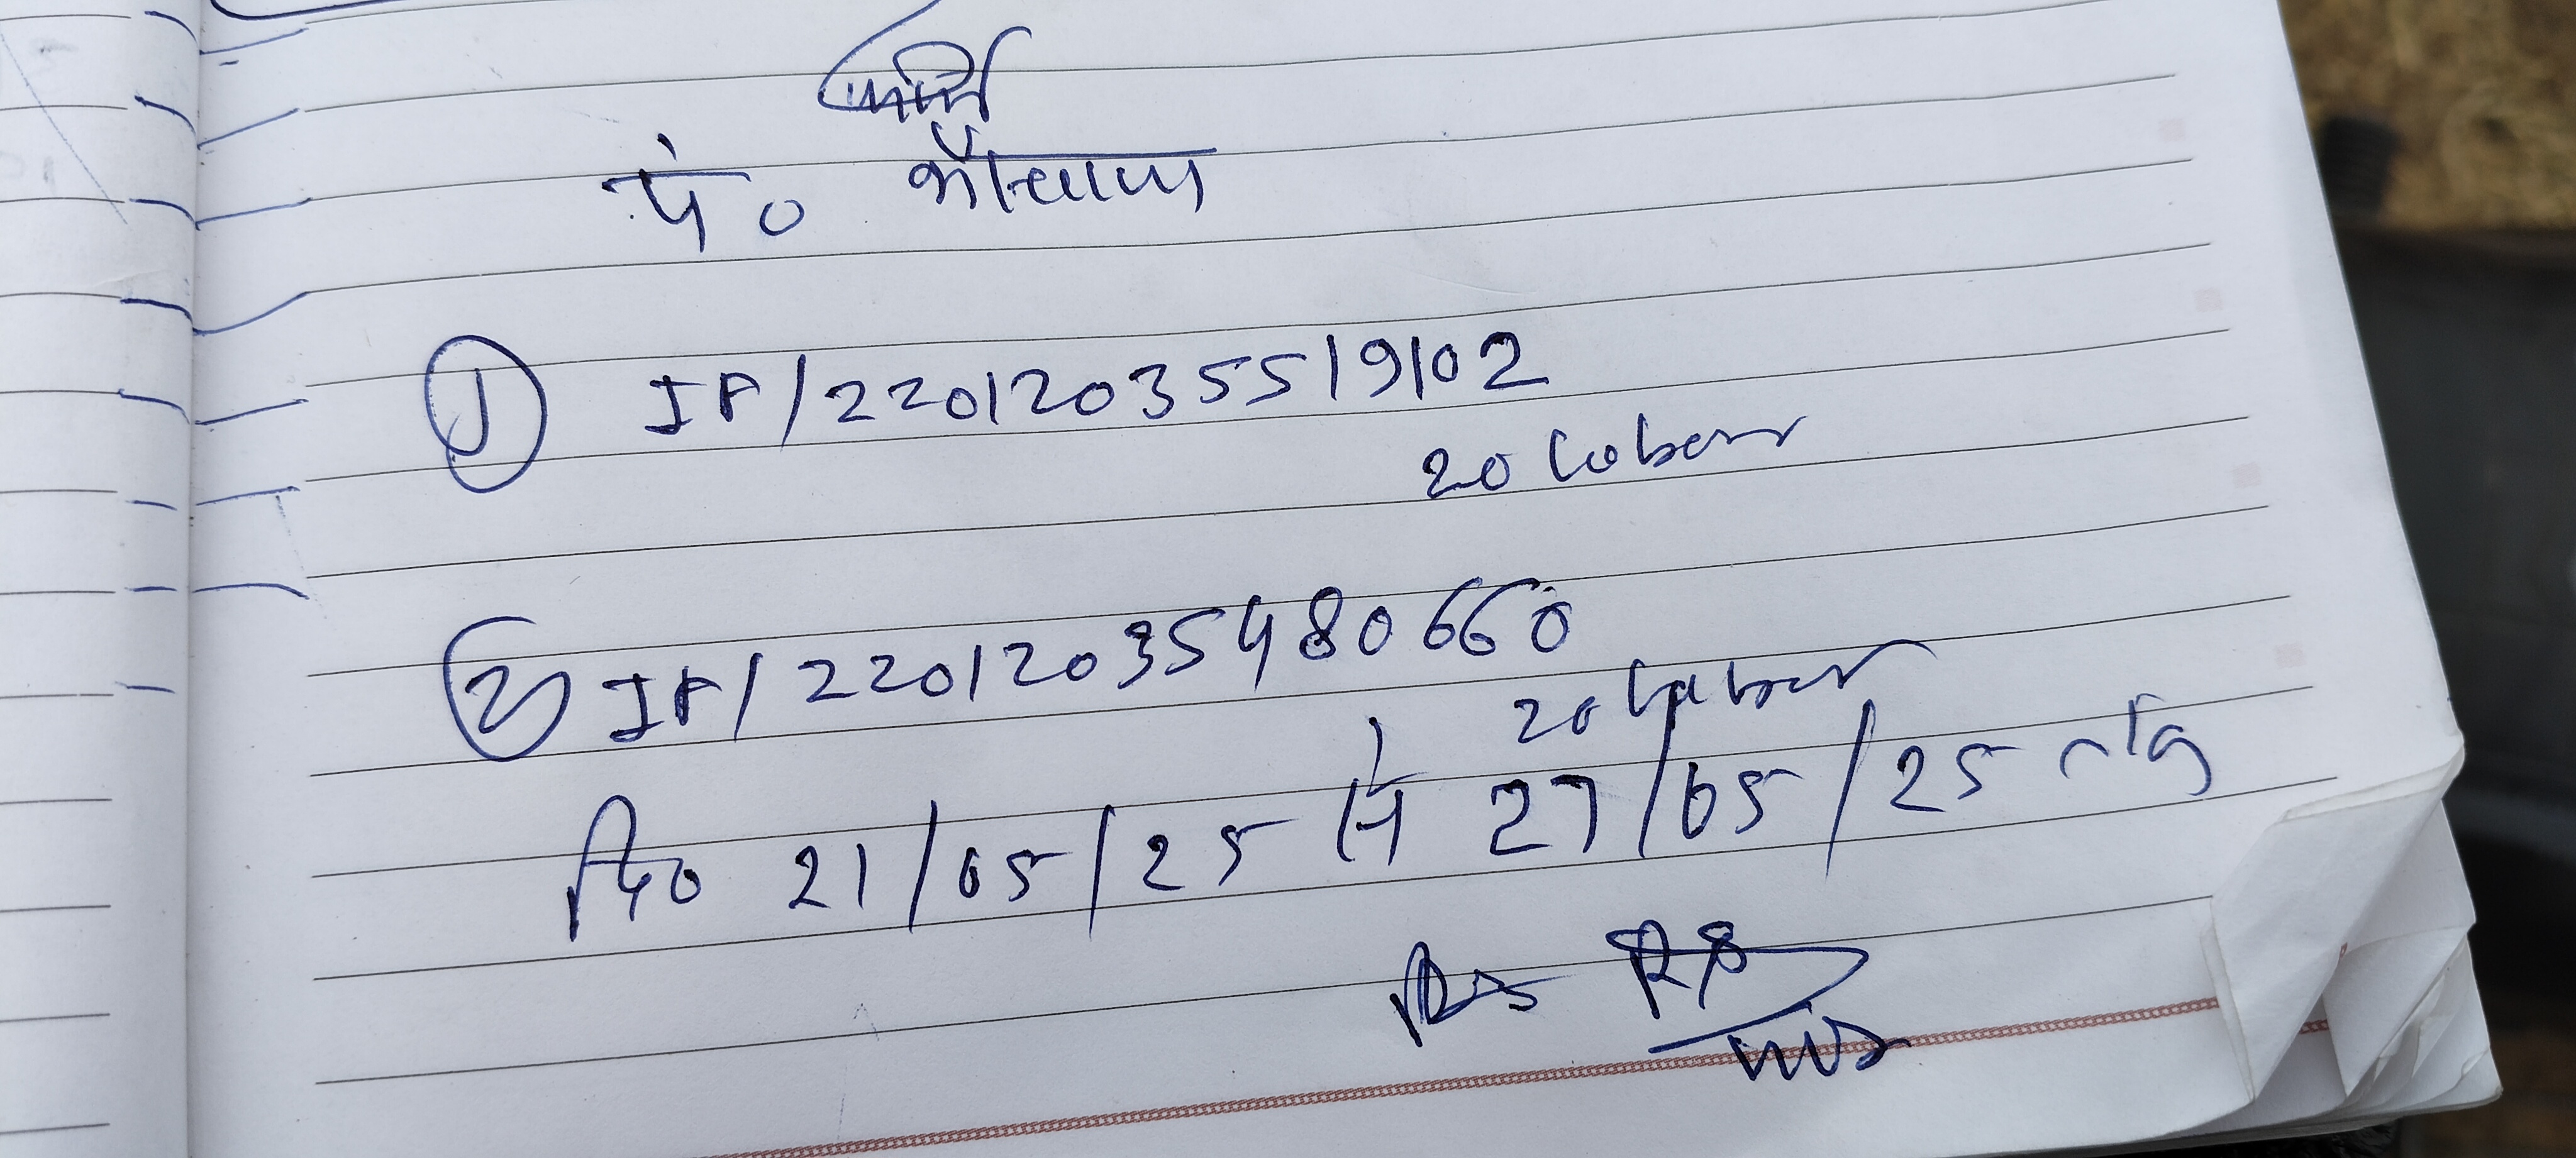 पं० भौंचापा
① IF/2201203551 9102
20 labour
② IF/220120354 80660
20 labour
दि0 21/05/25 से 27/05/25 तक